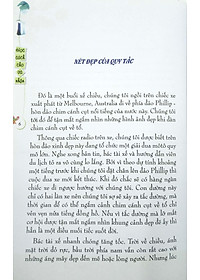 HỌC
CÁCH
CHO
VÀ
NHẬN
NÉT ĐẸP CỦA QUY TẮC
Đó là một buổi xế chiều, chúng tôi ngồi trên chiếc xe
xuất phát từ Melbourne, Australia đi về phía đảo Phillip -
hòn đảo chim cánh cụt nổi tiếng của nước này. Chúng tôi
tới đó để tận mắt ngắm nhìn những hình ảnh đẹp khi đàn
chim cánh cụt về tổ.
Thông qua chiếc radio trên xe, chúng tôi được biết trên
hòn đảo này đang tổ chức một giải đua môtô quy
mô lớn. Nghe xong tin, bác tài xế và hướng dẫn viên du
lịch tỏ ra vô cùng lo lắng. Bởi vì theo tính toán, khoảng
một tiếng trước khi chúng tôi đặt chân lên đảo Phillip thì
cuộc đua xe mới kết thúc. Khi đó chắc sẽ có hàng ngàn
chiếc xe đi ngược hướng với chúng tôi. Con đường này
chỉ có hai làn xe nên chúng tôi sợ sẽ xảy ra tắc đường, mà
thời gian để có thể ngắm chim cánh cụt về tổ chỉ
vẻn vẹn nửa tiếng đồng hồ. Nếu vì tắc đường mà lỡ mất
cơ hội được tận mắt ngắm nhìn khung cảnh đẹp đẽ ấy thì
quả là một điều nuối tiếc suốt đời.
Bác tài xế nhanh chóng tăng tốc. Trời về chiều, ánh
mặt trời đỏ rực, bầu trời phía nam vẫn còn rất cao với
những áng mây đẹp đến mê hoặc lòng người. Nhưng lúc